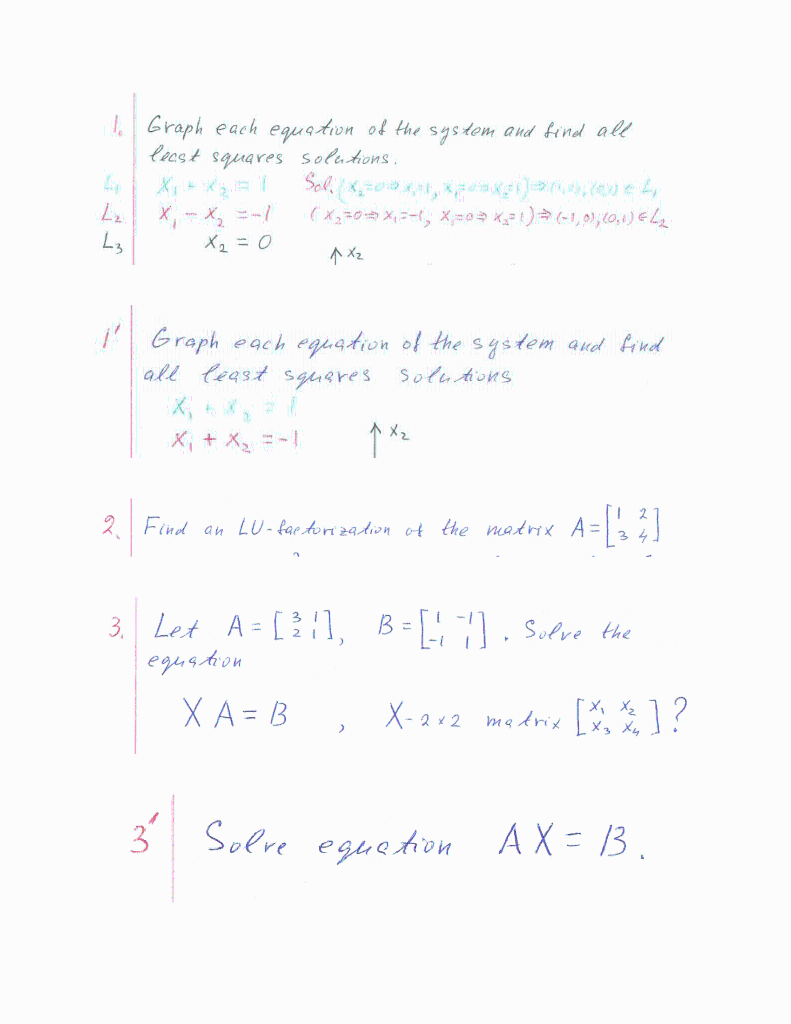 1. Graph each equation of the system and find all
least squares solutions.
L₁ x₁ + x₂ = 1 Sol. (x₂=0⇒x₁=1, x₁=0⇒x₂=1)⇒(1,0),(0,1) ∈ L₁
L₂ x₁ − x₂ = −1 (x₂=0⇒x₁=−1, x₁=0⇒x₂=1)⇒(−1,0),(0,1) ∈ L₂
L₃ x₂ = 0
↑ x₂
1' Graph each equation of the system and find
all least squares solutions
x₁ + x₂ = 1
x₁ + x₂ = −1
↑ x₂
2. Find an LU-factorization of the matrix A = [1 2
3 4]
3. Let A = [3 1
2 1], B = [1 −1
−1 1]. Solve the
equation
X A = B , X - 2×2 matrix [x₁ x₂
x₃ x₄] ?
3' Solve equation A X = B.